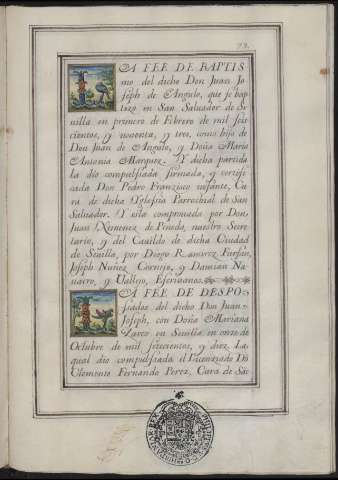 73.
LA FEE DE BAPTIS
mo del dicho Don Juan Jo
seph de Angulo, que se bap
tizo en San Salvador de Se
uilla en primero de Febrero de mil seis
cientos, y nouenta, y tres, como hijo de
Don Juan de Angulo, y Doña Maria
Antonia Marquez. Y dicha partida
la dio compulsada, firmada, y certifi
cada Don Pedro Francisco Infante, Cu
ra de dicha Yglesia Parrochial de San
Saluador. Y esta comprouada por Don
Juan Ximenez de Peñoda, nuestro Secre
tario, y del Cauildo de dicha Ciudad
de Seuilla, por Diego Ramirez
Joseph Nuñez Cornejo, y Damian Na
uarro, y Vallejo, Escriuanos.
LA FEE DE DESPO
sados del dicho Don Juan
Joseph, con Doña Mariana
en Seuilla en onze de
Octubre de mil setecientos, y diez. La
qual dio compulsada el Licenciado Dn
Clemente Fernando Perez, Cura de San